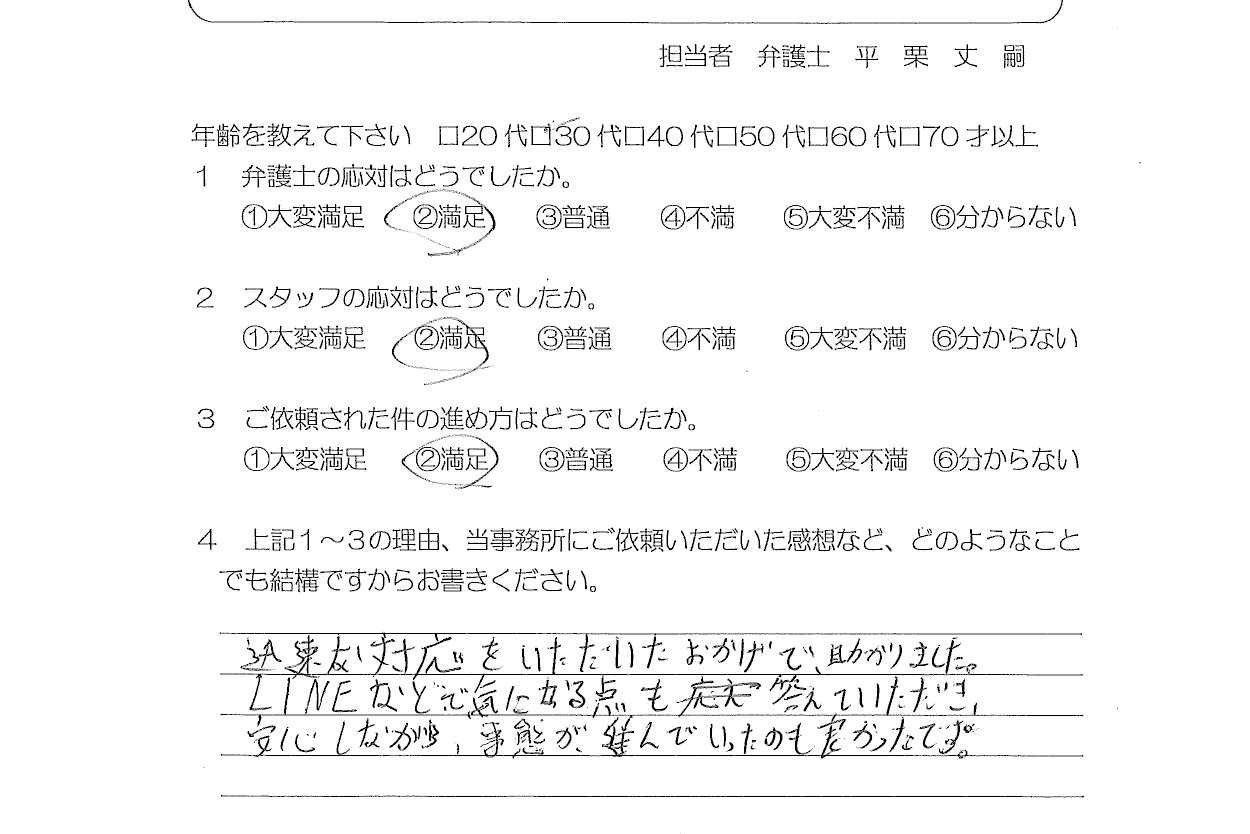 担当者　弁護士　平　栗　丈　嗣
年齢を教えて下さい　□20代□30代□40代□50代□60代□70才以上
１　弁護士の応対はどうでしたか。
①大変満足　②満足　③普通　④不満　⑤大変不満　⑥分からない
２　スタッフの応対はどうでしたか。
①大変満足　②満足　③普通　④不満　⑤大変不満　⑥分からない
３　ご依頼された件の進め方はどうでしたか。
①大変満足　②満足　③普通　④不満　⑤大変不満　⑥分からない
４　上記１～３の理由、当事務所にご依頼いただいた感想など、どのようなこと
でも結構ですからお書きください。
迅速な対応をいただいたおかげで、助かりました。
LINEなどで気になる点も答えていただき、
安心しながら、事態が進んでいったのも良かったです。